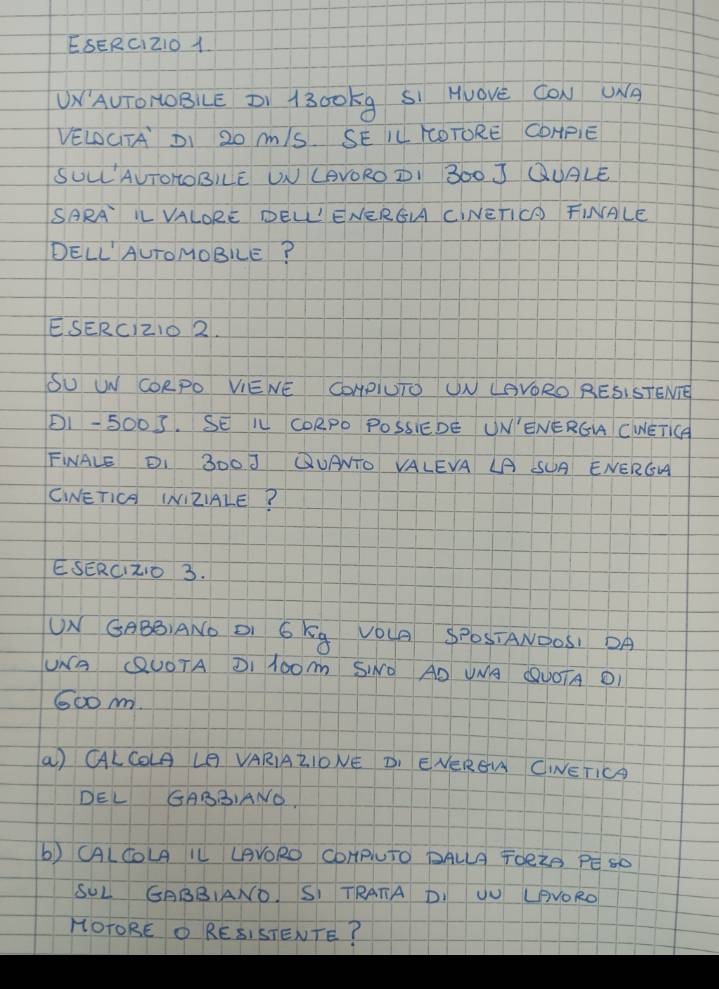 ESERCIZIO 1.
UN'AUTOMOBILE DI 1300kg SI MUOVE CON UNA
VELOCITA' DI 20 m/s. SE IL MOTORE COMPIE
SULL'AUTOMOBILE UN LAVORO DI 300 J QUALE
SARA' IL VALORE DELL'ENERGIA CINETICA FINALE
DELL'AUTOMOBILE ?
ESERCIZIO 2.
SU UN CORPO VIENE COMPIUTO UN LAVORO RESISTENTE
DI -500J. SE IL CORPO POSSIEDE UN'ENERGIA CINETICA
FINALE DI 300J QUANTO VALEVA LA SUA ENERGIA
CINETICA INIZIALE ?
ESERCIZIO 3.
UN GABBIANO DI 6 kg VOLA SPOSTANDOSI DA
UNA QUOTA DI 100 m SINO AD UNA QUOTA DI
600 m.
a) CALCOLA LA VARIAZIONE DI ENERGIA CINETICA
DEL GABBIANO.
b) CALCOLA IL LAVORO COMPIUTO DALLA FORZA PESO
SUL GABBIANO. SI TRATTA DI UN LAVORO
MOTORE O RESISTENTE ?